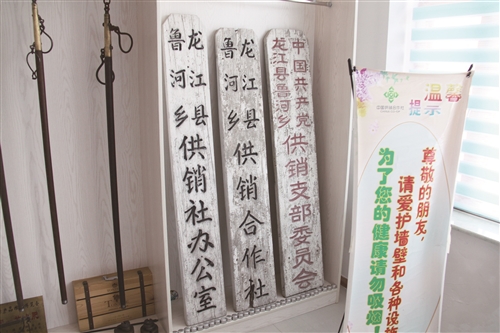 龙江县
鲁河乡
供销社办公室
龙江县
鲁河乡
供销合作社
中国共产党
龙江县鲁河乡
供销支部委员会
温馨
提示
尊敬的朋友，
请爱护墙壁和各种设施
为了您的健康请勿吸烟